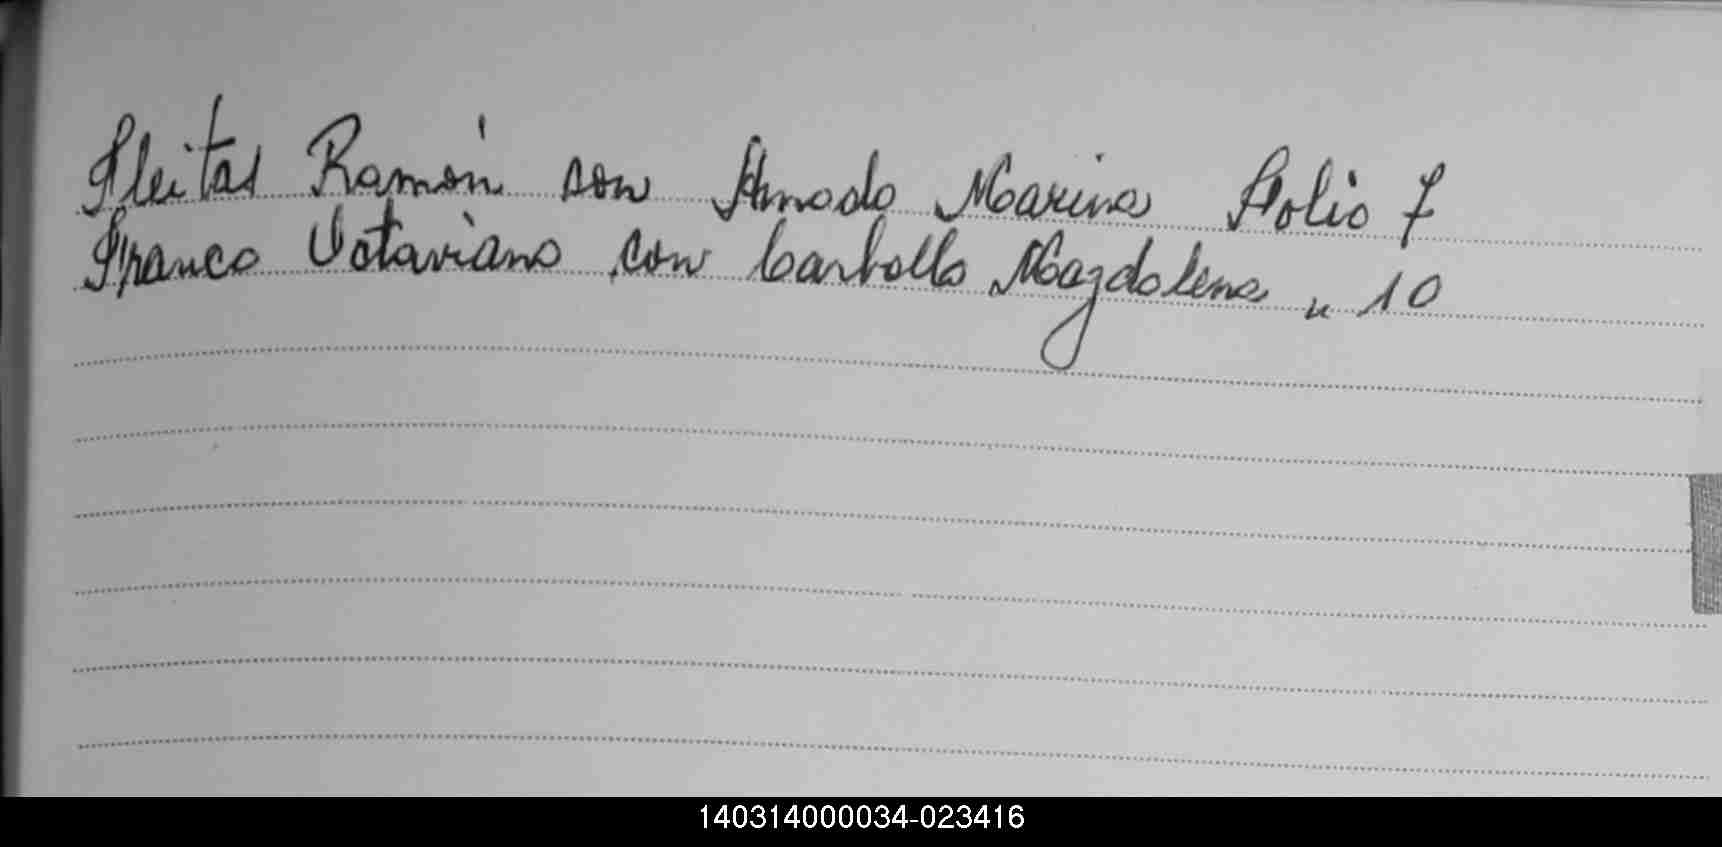 Fleitas Ramón con Amado Marina Folio 7
Franco Octaviano con Carballo Magdalena " 10
140314000034-023416